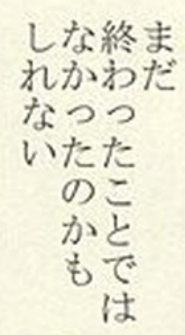 まだ
終わったことでは
なかったのかも
しれない